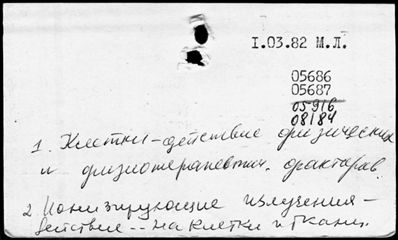 I.03.82 М.Л.
05686
05687
05916
08184
1. Клетки-действие физических
и физиотерапевтич. факторов.
2. Ионизирующие излучения -
действие -- на клетки и ткани.